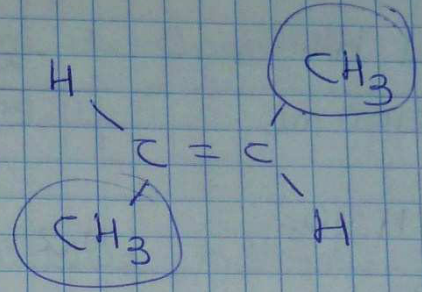 CH3
H
C = C
CH3
H